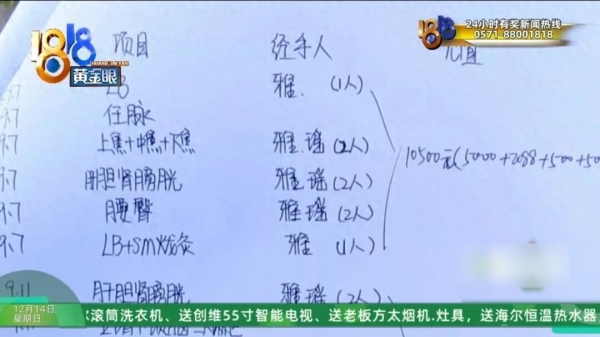 24小时有奖新闻热线
0571-88001818
1818
黄金眼
项目 经手人
9.7 LB 雅. (1人)
9.7 任脉
9.7 上焦+中焦+下焦 雅.瑶(2人)
10500元(5000+2088+500+50
9.7 肝胆肾膀胱 雅.瑶(2人)
9.7 腰臀 雅.瑶(2人)
9.7 LB+SM戏灸 雅 (1人)
9.11 肝胆肾膀胱 雅.瑶(2人)
12月14日
星期日
滚筒洗衣机、送创维55寸智能电视、送老板方太烟机.灶具，送海尔恒温热水器